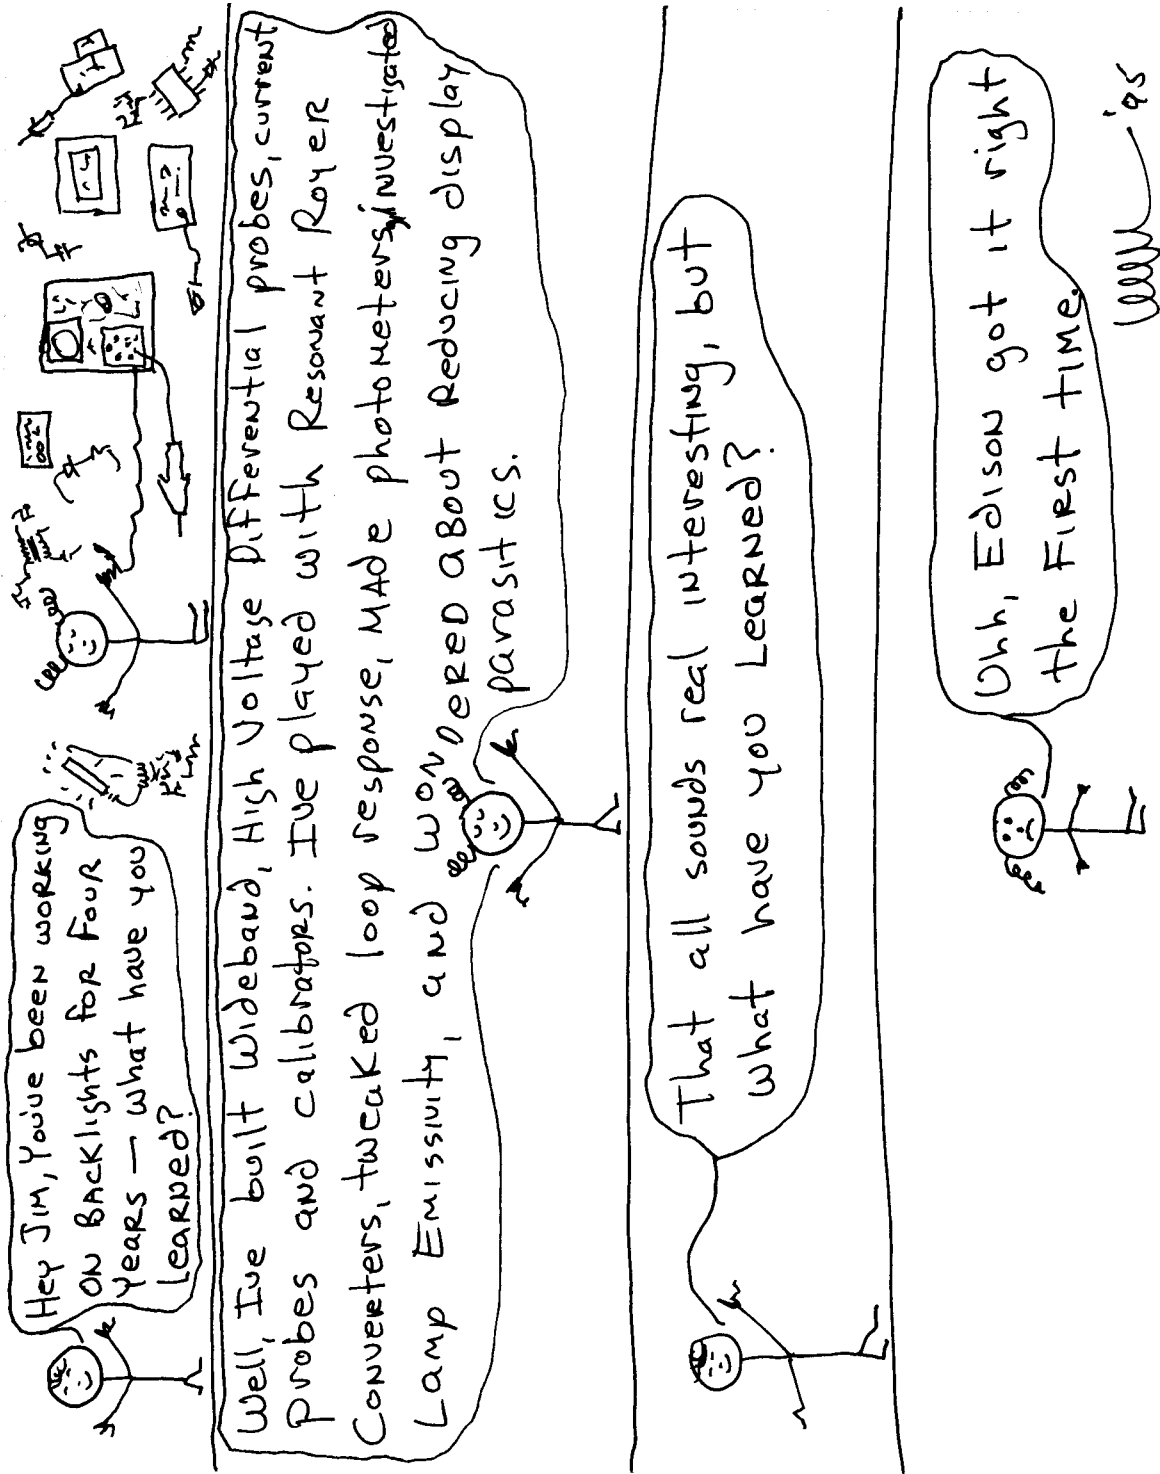 Hey Jim, You've been working
on Backlights for Four
Years — what have you
Learned?
Well, I've built Wideband, High Voltage Differential probes, current
probes and calibrators. I've played with Resonant Royer
Converters, tweaked loop response, made photometers, investigated
Lamp Emissivity, and wondered about reducing display
parasitics.
That all sounds real interesting, but
what have you Learned?
Uhh, Edison got it right
the First Time.
'95